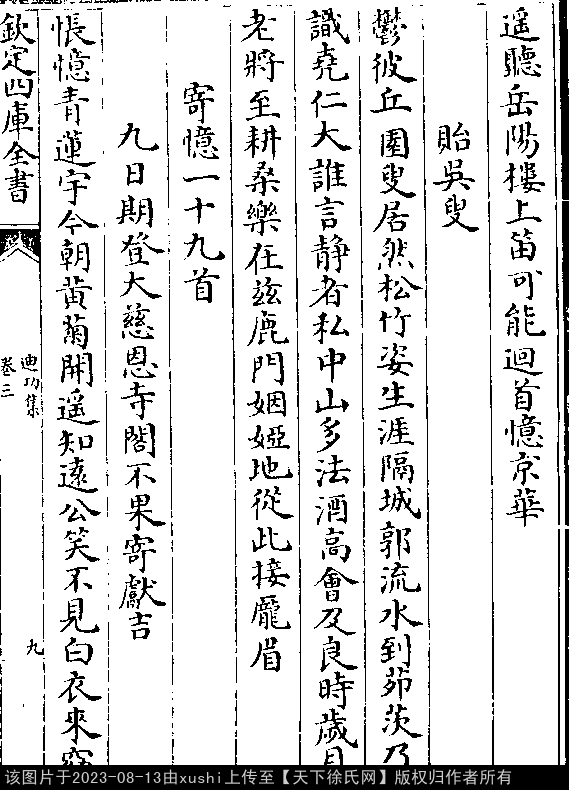 遥聽岳陽樓上笛可能迴首憶京華
貽吳叟
鬱彼丘園叟居然松竹姿生涯隔城郭流水到茆茨乃
識堯仁大誰言静者私中山多法酒高會及良時歲月
老將至耕桑樂在兹鹿門姻婭地從此接龎眉
寄憶一十九首
九日期登大慈恩寺閣不果寄獻吉
悵憶青蓮宇今朝黄菊開遥知遠公笑不見白衣來窈
欽定四庫全書
迪功集
卷三
九
该图片于2023-08-13由xushi上传至【天下徐氏网】版权归作者所有